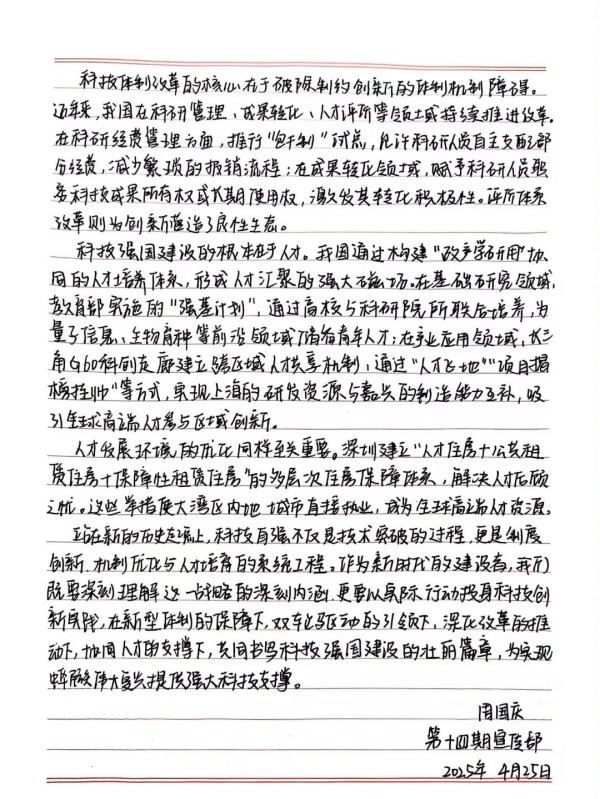 科技体制改革的核心在于破除制约创新的体制机制障碍。
近年来，我国在科研管理、成果转化、人才评价等领域持续推进改革。
在科研经费管理方面，推行“包干制”试点，允许科研人员自主支配部
分经费，减少繁琐的报销流程；在成果转化领域，赋予科研人员职
务科技成果所有权或长期使用权，激发其转化积极性。评价体系
改革则为创新营造了良性生态。
科技强国建设的根本在于人才。我国通过构建“政产学研用”协
同的人才培养体系，形成人才汇聚的强大磁场。在基础研究领域，
教育部实施的“强基计划”，通过高校与科研院所联合培养，为
量子信息、生物育种等前沿领域储备青年人才；在产业应用领域，长三
角G60科创走廊建立跨区域人才共享机制，通过“人才飞地”“项目揭
榜挂帅”等方式，实现上海的研发资源与嘉兴的制造能力互补，吸
引全球高端人才参与区域创新。
人才发展环境的优化同样至关重要。深圳建立“人才住房+公共租
赁住房+保障性租赁住房”的多层次住房保障体系，解决人才后顾
之忧。这些举措使大湾区内地城市直接执业，成为全球高端人才资源。
站在新的历史起点上，科技自强不仅是技术突破的过程，更是制度
创新、机制优化与人才培育的系统工程。作为新时代的建设者，我们
既要深刻理解这一战略的深刻内涵，更要以实际行动投身科技创
新实践，在新型体制的保障下，双轮驱动的引领下，深化改革的推
动下，协同人才的支撑下，共同书写科技强国建设的壮丽篇章，为实现
中华民族伟大复兴提供强大科技支撑。
周国庆
第十四期宣传部
2025年 4月25日